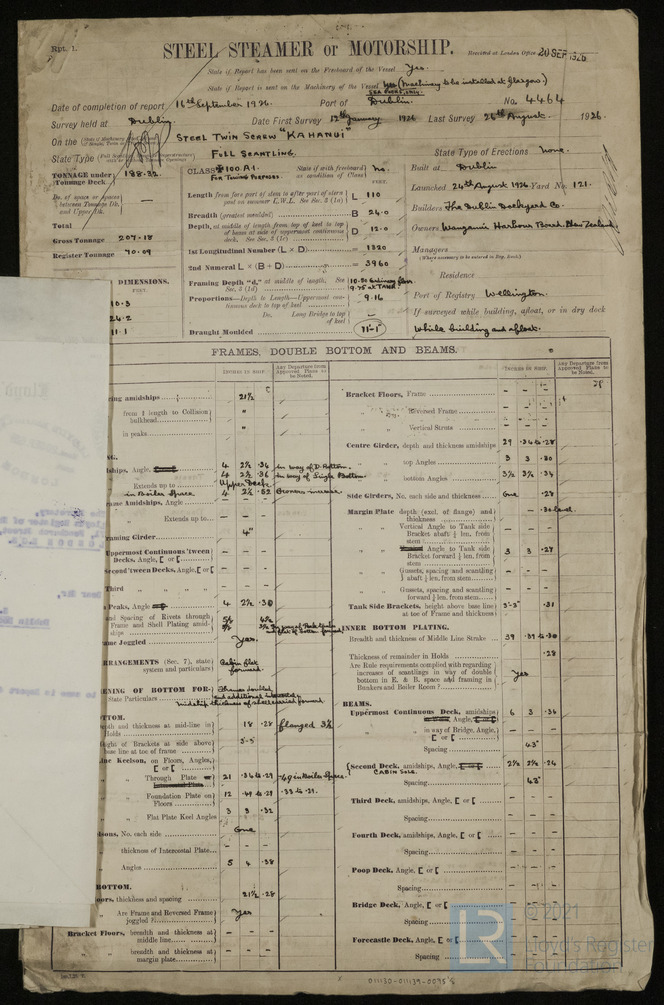 Rpt. 1.
STEEL STEAMER or MOTORSHIP.
Received at London Office 20 SEP 1926
State if Report has been sent on the Freeboard of the Vessel Yes.
State if Report is sent on the Machinery of the Vessel (Machinery to be installed at Glasgow.)
Date of completion of report 16th September 1926. Port of Dublin. No. 4464
Survey held at Dublin. Date First Survey 12th January 1926 Last Survey 26th August. 1926
On the STEEL TWIN SCREW "KAHANUI"
State Type FULL SCANTLING. State Type of Erections None.
TONNAGE under Tonnage Deck 188.32.
Do. of space or spaces between Tonnage Dk. and Upper Dk. —
Total
Gross Tonnage 207.18
Register Tonnage 70.09
CLASS 100 A1. State if with freeboard as condition of Class No.
FOR TOWING PURPOSES
FEET.
Length from fore part of stem to after part of stern post on summer L.W.L. See Sec. 3 (1a) L 110
Breadth (greatest moulded) B 24.0
Depth, at middle of length from top of keel to top of beam at side of uppermost continuous deck. See Sec. 3 (1c) D 12.0
1st Longitudinal Number (L × D) = 1320
2nd Numeral L × (B + D) = 3960
Framing Depth "d," at middle of length. See Sec. 3 (1d) 10.50 ordinary floors. 9.75 at TANK.
Proportions—Depth to Length—Uppermost continuous deck to top of keel 9.16
Do. Long Bridge to top of keel —
Draught Moulded 11'-1"
Built at Dublin
Launched 24th August 1926 Yard No. 121.
Builders The Dublin Dockyard Co.
Owners Wanganui Harbour Board. New Zealand
Managers
(Where necessary to be entered in Reg. Book.)
Residence
Port of Registry Wellington.
If surveyed while building, afloat, or in dry dock
While building and afloat.
DIMENSIONS.
FEET.
10.3
24.2
11.1
FRAMES, DOUBLE BOTTOM AND BEAMS.
INCHES IN SHIP.
Any Departure from Approved Plans to be Noted.
INCHES IN SHIP.
Any Departure from Approved Plans to be Noted.
ing amidships 21½
from ⅕ length to Collision bulkhead "
in peaks "
ships, Angle, 4 2½ .34 in way of D. Bottom.
4 2½ .36 in way of Single Bottom.
Extends up to Upper Deck
in Boiler Space 4 2½ .52 Owners increase.
rame Amidships, Angle — — —
Extends up to —
raming Girder 4"
Uppermost Continuous 'tween Decks, Angle, [ or [ — — —
Second 'tween Decks, Angle, [ or [ — — —
Third " " " — — —
Peaks, Angle 4 2½ .30
and Spacing of Rivets through Frame and Shell Plating amidships
rame Joggled Yes.
RRANGEMENTS (Sec. 7), state system and particulars Cabin flat forward.
ENING OF BOTTOM FOR-
State Particulars Frames doubled and additional intercostals
midship thickness of shell carried forward
TTOM.
epth and thickness at mid-line in Holds 18 .28 flanged 3½
eight of Brackets at side above base line at toe of frame 3'-5"
ine Keelson, on Floors, Angles, [ or [ — — —
" Through Plate 21 .36 to .29 .49 in Boiler Space.
" Foundation Plate on Floors 12 .49 to .29 .33 to .29.
" Flat Plate Keel Angles 3 3 .32
sons, No. each side One
thickness of Intercostal Plate —
Angles 5 4 .38
BOTTOM.
oors, thickness and spacing 21½ .28
Are Frame and Reversed Frame joggled? Yes
Bracket Floors, breadth and thickness at middle line — — —
" breadth and thickness at margin plate — — —
Bracket Floors, Frame — — —
" Reversed Frame — — —
" Vertical Struts — — —
Centre Girder, depth and thickness amidships 29 .36 to .28
" top Angles 3 3 .30
" bottom Angles 3½ 3½ .34
Side Girders, No. each side and thickness One .28
Margin Plate depth (excl. of flange) and thickness
" Vertical Angle to Tank side Bracket abaft ¼ len. from stem — — —
" Angle to Tank side Bracket forward ¼ len. from stem 3 3 .27
" Gussets, spacing and scantling abaft ¼ len. from stem — — —
" Gussets, spacing and scantling forward ¼ len. from stem — — —
Tank Side Brackets, height above base line at toe of Frame and thickness 3'-2" .31
INNER BOTTOM PLATING.
Breadth and thickness of Middle Line Strake 39 .37 to .30
Thickness of remainder in Holds .28
Are Rule requirements complied with regarding increases of scantlings in way of double bottom in E. & B. space and framing in Bunkers and Boiler Room? Yes
BEAMS.
Uppermost Continuous Deck, amidships Angle, 6 3 .36
in way of Bridge, Angle, [ or [ — — —
Spacing 43"
Second Deck, amidships, Angle, 2½ 2½ .24
CABIN SOLE.
Spacing 43"
Third Deck, amidships, Angle, [ or [ — — —
Spacing —
Fourth Deck, amidships, Angle, [ or [ — — —
Spacing —
Poop Deck, Angle, [ or [ — — —
Spacing —
Bridge Deck, Angle, [ or [ — — —
Spacing
Forecastle Deck, Angle, [ or [
Spacing
LR
© 2021
Lloyd's Register
Foundation
011130-011139-0075